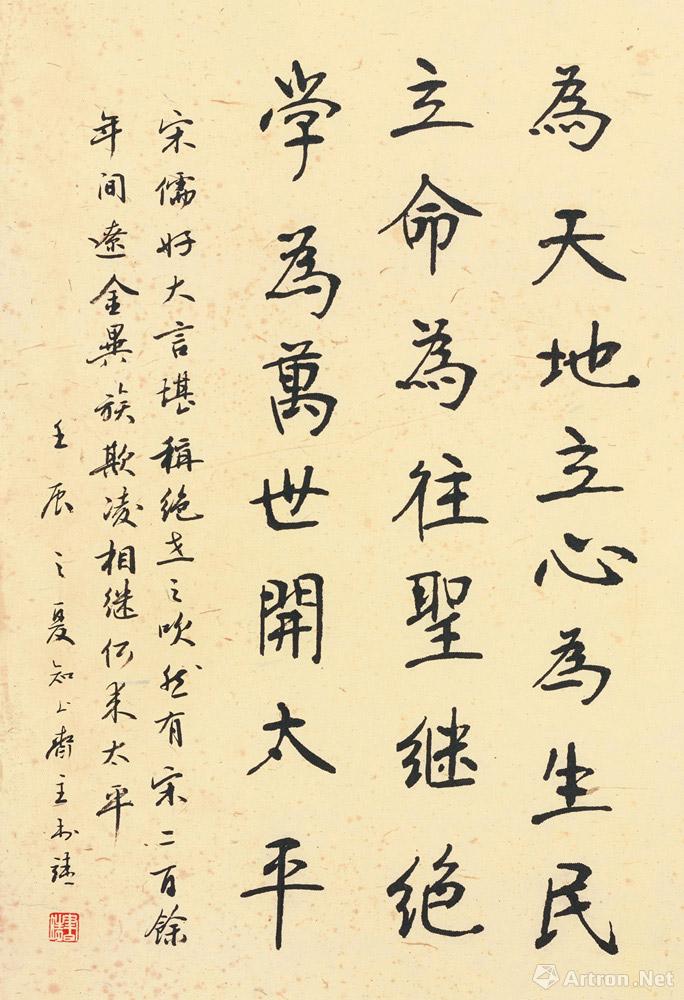 為天地立心為生民
立命為往聖继绝
学為萬世開太平
宋儒好大言堪稱绝世之吹然有宋二百餘
年间遼金異族欺凌相继何来太平
壬辰之夏知止齋主
Artron.Net